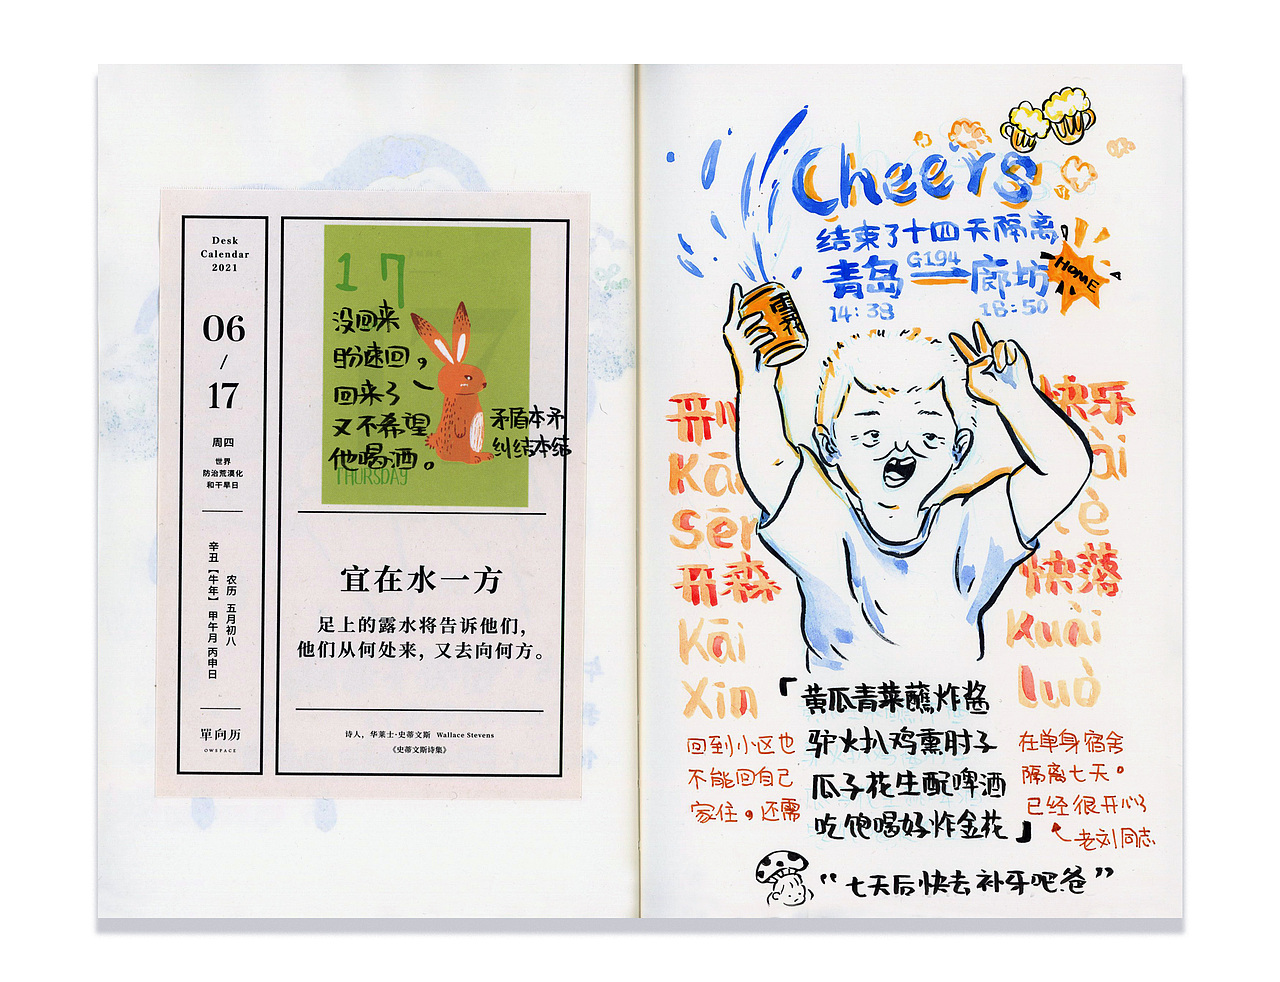 Desk
Calendar
2021
06
/
17
周四
世界
防治荒漠化
和干旱日
辛丑【牛年】甲午月丙申日
农历 五月初八
單向历
OWSPACE
17
没回来
盼速回，
回来了
又不希望
他喝酒。
THURSDAY
矛盾本矛
纠结本结
宜在水一方
足上的露水将告诉他们，
他们从何处来，又去向何方。
诗人，华莱士·史蒂文斯 Wallace Stevens
《史蒂文斯诗集》
Cheers
结束了十四天隔离，
青岛 G194 廊坊
14:38 18:50
HOME
雪花
开心
Kāi
Sēn
开森
Kāi
Xīn
快乐
快落
Kuài
luò
「黄瓜青菜蘸炸酱
驴火扒鸡熏肘子
瓜子花生配啤酒
吃饱喝好炸金花」
回到小区也
不能回自己
家住。还需
在单身宿舍
隔离七天。
已经很开心了
老刘同志
“七天后快去补牙吧爸”